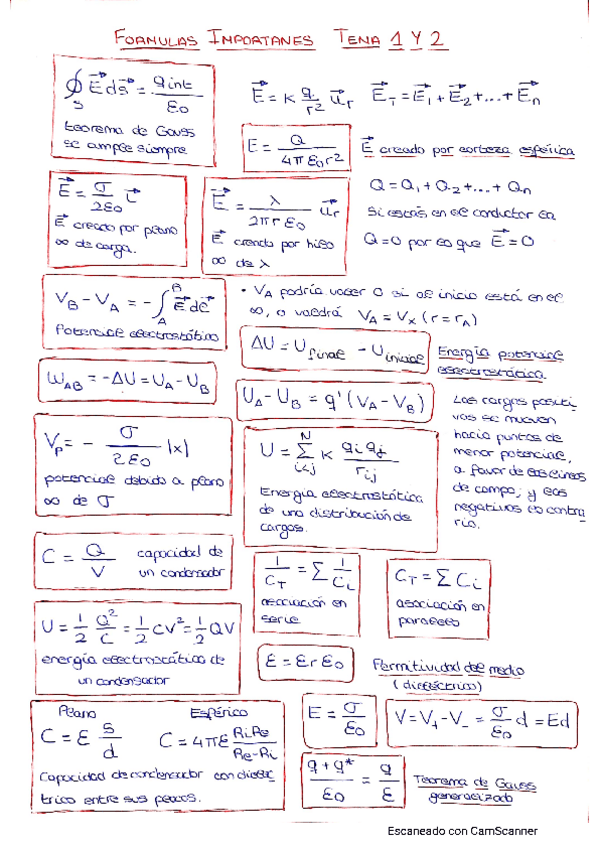 FORMULAS IMPORTANES TEMA 1 Y 2
∮S E⃗ ds⃗ = qint/ε0
teorema de Gauss
se cumple siempre
E⃗ = K q/r² u⃗r
E⃗T = E⃗1 + E⃗2 + ... + E⃗n
E = Q/4πε0r²
E⃗ creado por corteza esférica
E⃗ = σ/2ε0 i⃗
E⃗ creado por plano
∞ de carga.
E⃗ = λ/2πrε0 u⃗r
E⃗ creado por hilo
∞ de λ
Q = Q1 + Q2 + ... + Qn
Si estás en el conductor la
Q=0 por lo que E⃗ = 0
VB - VA = -∫A^B E⃗ dl⃗
Potencial electrostático
· VA podría valer 0 si el inicio está en el
∞, o valdrá VA = Vx (r = rA)
ΔU = Ufinal - Uinicial
Energía potencial
electrostática.
WAB = -ΔU = UA - UB
UA - UB = q'(VA - VB)
Las cargas positi
vas se mueven
hacia puntos de
menor potencial,
a favor de las líneas
de campo; y las
negativas lo contra
rio.
Vp = - σ/2ε0 |x|
potencial debido a plano
∞ de σ
U = Σ i<j ^N K qi qj/rij
Energía electrostática
de una distribución de
cargas.
C = Q/V capacidad de
un condensador
1/CT = Σ 1/Ci
asociación en
serie
CT = Σ Ci
asociación en
paralelo
U = 1/2 Q²/C = 1/2 CV² = 1/2 QV
energía electrostática de
un condensador
ε = εr ε0
Permitividad del medio
(dieléctrico)
Plano Esférico
C = ε S/d C = 4πε RiRe/Re-Ri
Capacidad de condensador con dieléc
trico entre sus placas.
E = σ/ε0
V = V+ - V- = σ/ε0 d = Ed
q + q*/ε0 = q/ε
Teorema de Gauss
generalizado
Escaneado con CamScanner